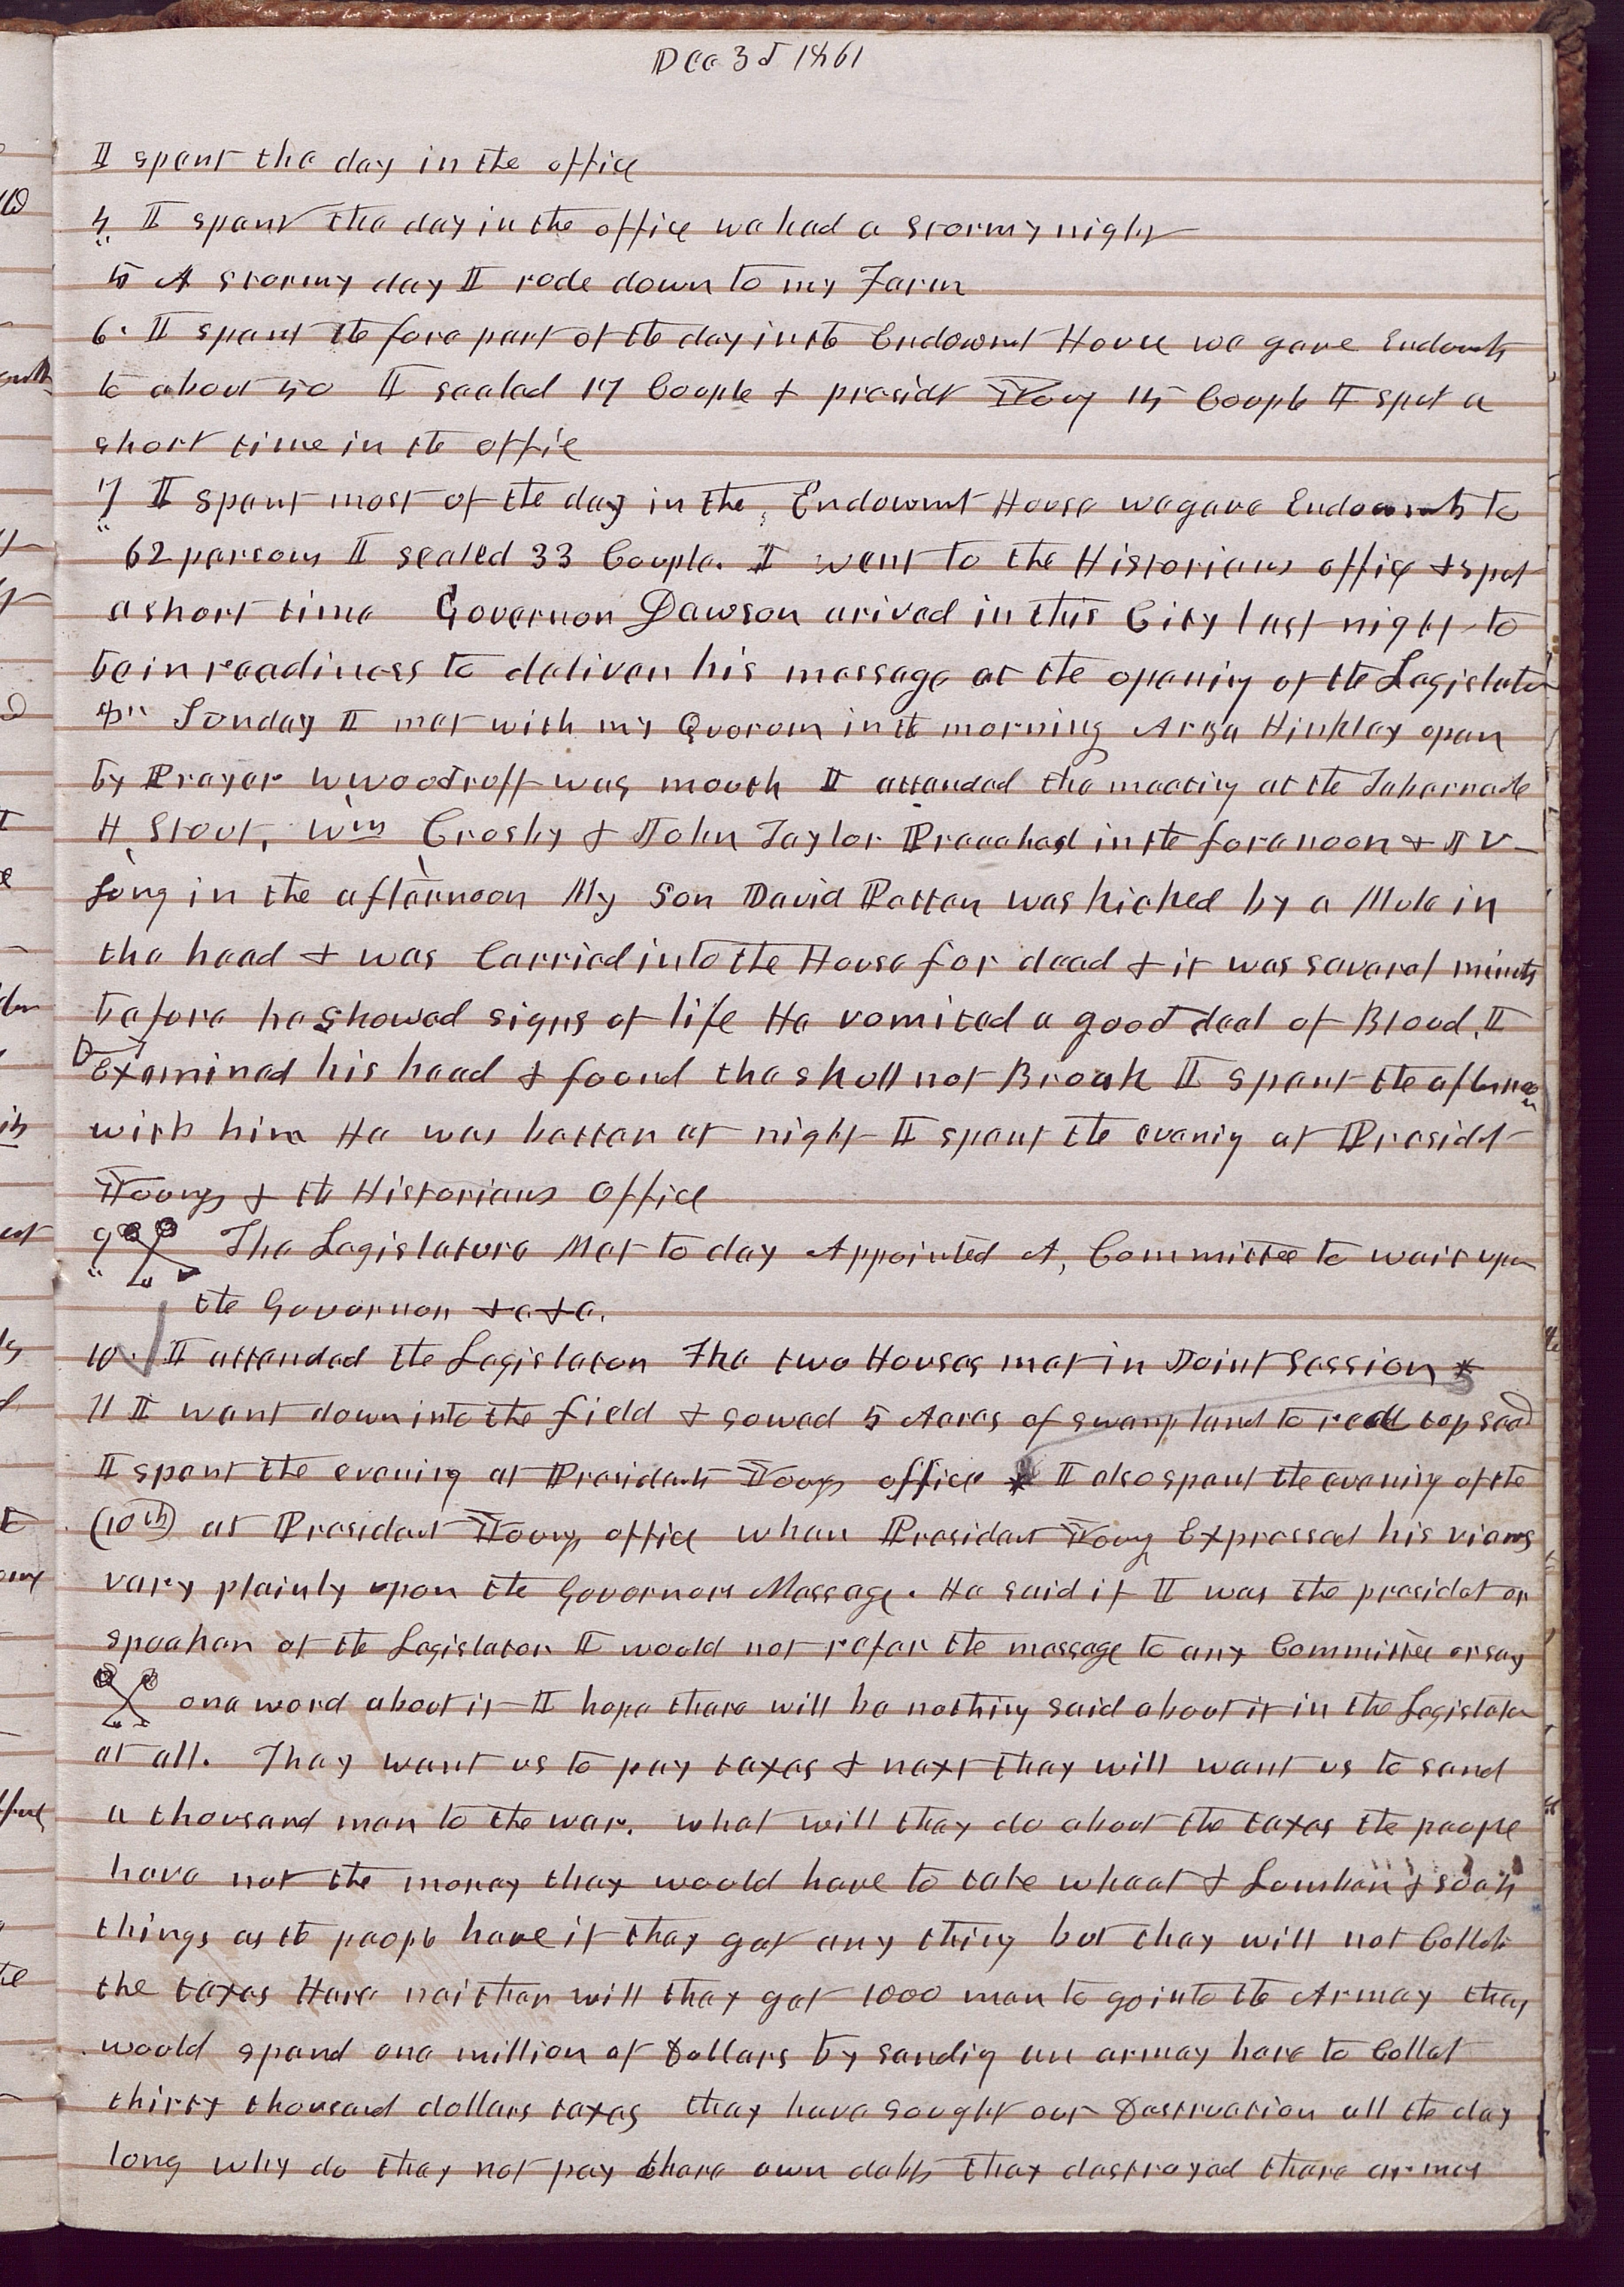 Dec 3d 1861
I spent the day in the office
4 I spent the day in the office we had a stormy night
5 A stormy day I rode down to my Farm
6. I spent the fore part of the day in the Endowmt House we gave Endowmts
to about 50 I sealed 17 Couple & presidt Young 15 Couple I spet a
short time in the offic
7 I spent most of the day in the Endowmt House we gave Endowmts to
62 persons I sealed 33 Couple. I went to the Historians office & spet
a short time Governor Dawson arived in this City last night to
be in readiness to deliver his message at the opening of the Legislatur
8 Sunday I met with my Quorum in the morning Arza Hinkley open
by Prayer W Woodruff was mouth I attended the meeting at the Tabernacle
H. Stout, Wm Crosby & John Taylor Preached in the forenoon & J V
Long in the afternoon My Son David Patten was kicked by a Mule in
the head & was Carried into the House for dead & it was several minuts
before he showed signs of life He vomited a good deal of Blood. I
Examined his head & found the skull not Broak I spent the afternoon
with him He was better at night I spent the evenig at Presidt
Youngs & the Historians Office
9 The Legislature Met to day Appointed A, Committee to wait upon
the Governor &c &c.
10. I attended the Legislator The two Houses met in Joint Session *
11 I went down into the field & sowed 5 Acres of swamp land to redd top seed
I spent the evening at Presidents Youngs office * I also spent the evening of the
(10th) at President Youngs office when President Young Expressed his views
very plainly upon the Governors Message. He said if I was the presidet or
speaker of the Legislator I would not refer the message to any Committee or say
one word about it I hope there will be nothing said about it in the Legislatur
at all. They want us to pay taxes & next they will want us to send
a thousand men to the war. what will they do about the taxes the people
have not the money they would have to take wheat & Lumber & such
things as the people have if they get any thing but they will not Collet
the taxes Here neither will they get 1000 men to go into the Armey they
would spend one million of Dollars by sendig an armey here to Collet
thirty thousand dollars taxes they have sought our Destruction all the day
long why do they not pay there own debts they destroyed there armes